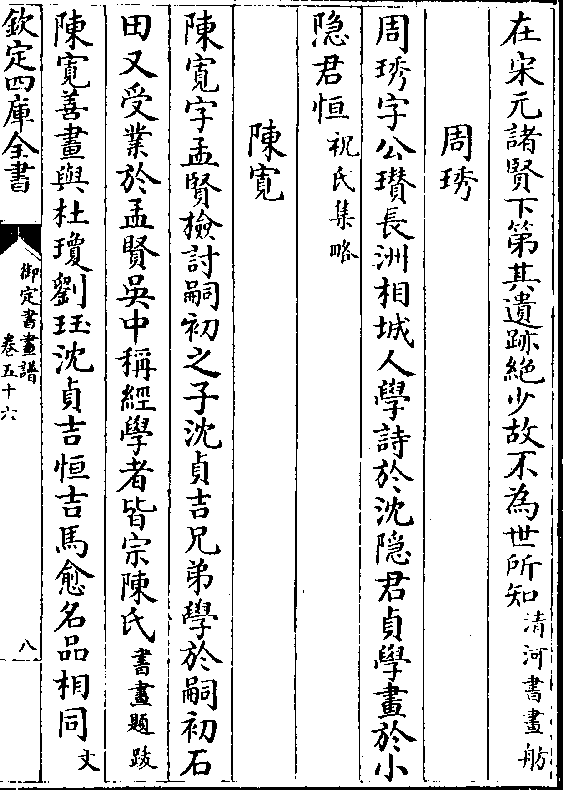 在宋元諸賢下第其遺跡絶少故不為世所知清河書畫舫
周琇
周琇字公瓚長洲相城人學詩於沈隐君貞學畫於小
隐君恒祝氏集略
陳寛
陳寛字孟賢檢討嗣初之子沈貞吉兄弟學於嗣初石
田又受業於孟賢吳中稱經學者皆宗陳氏書畫題跋
陳寛善畫與杜瓊劉珏沈貞吉恒吉馬愈名品相同文
欽定四庫全書
御定書畫譜
卷五十六
八